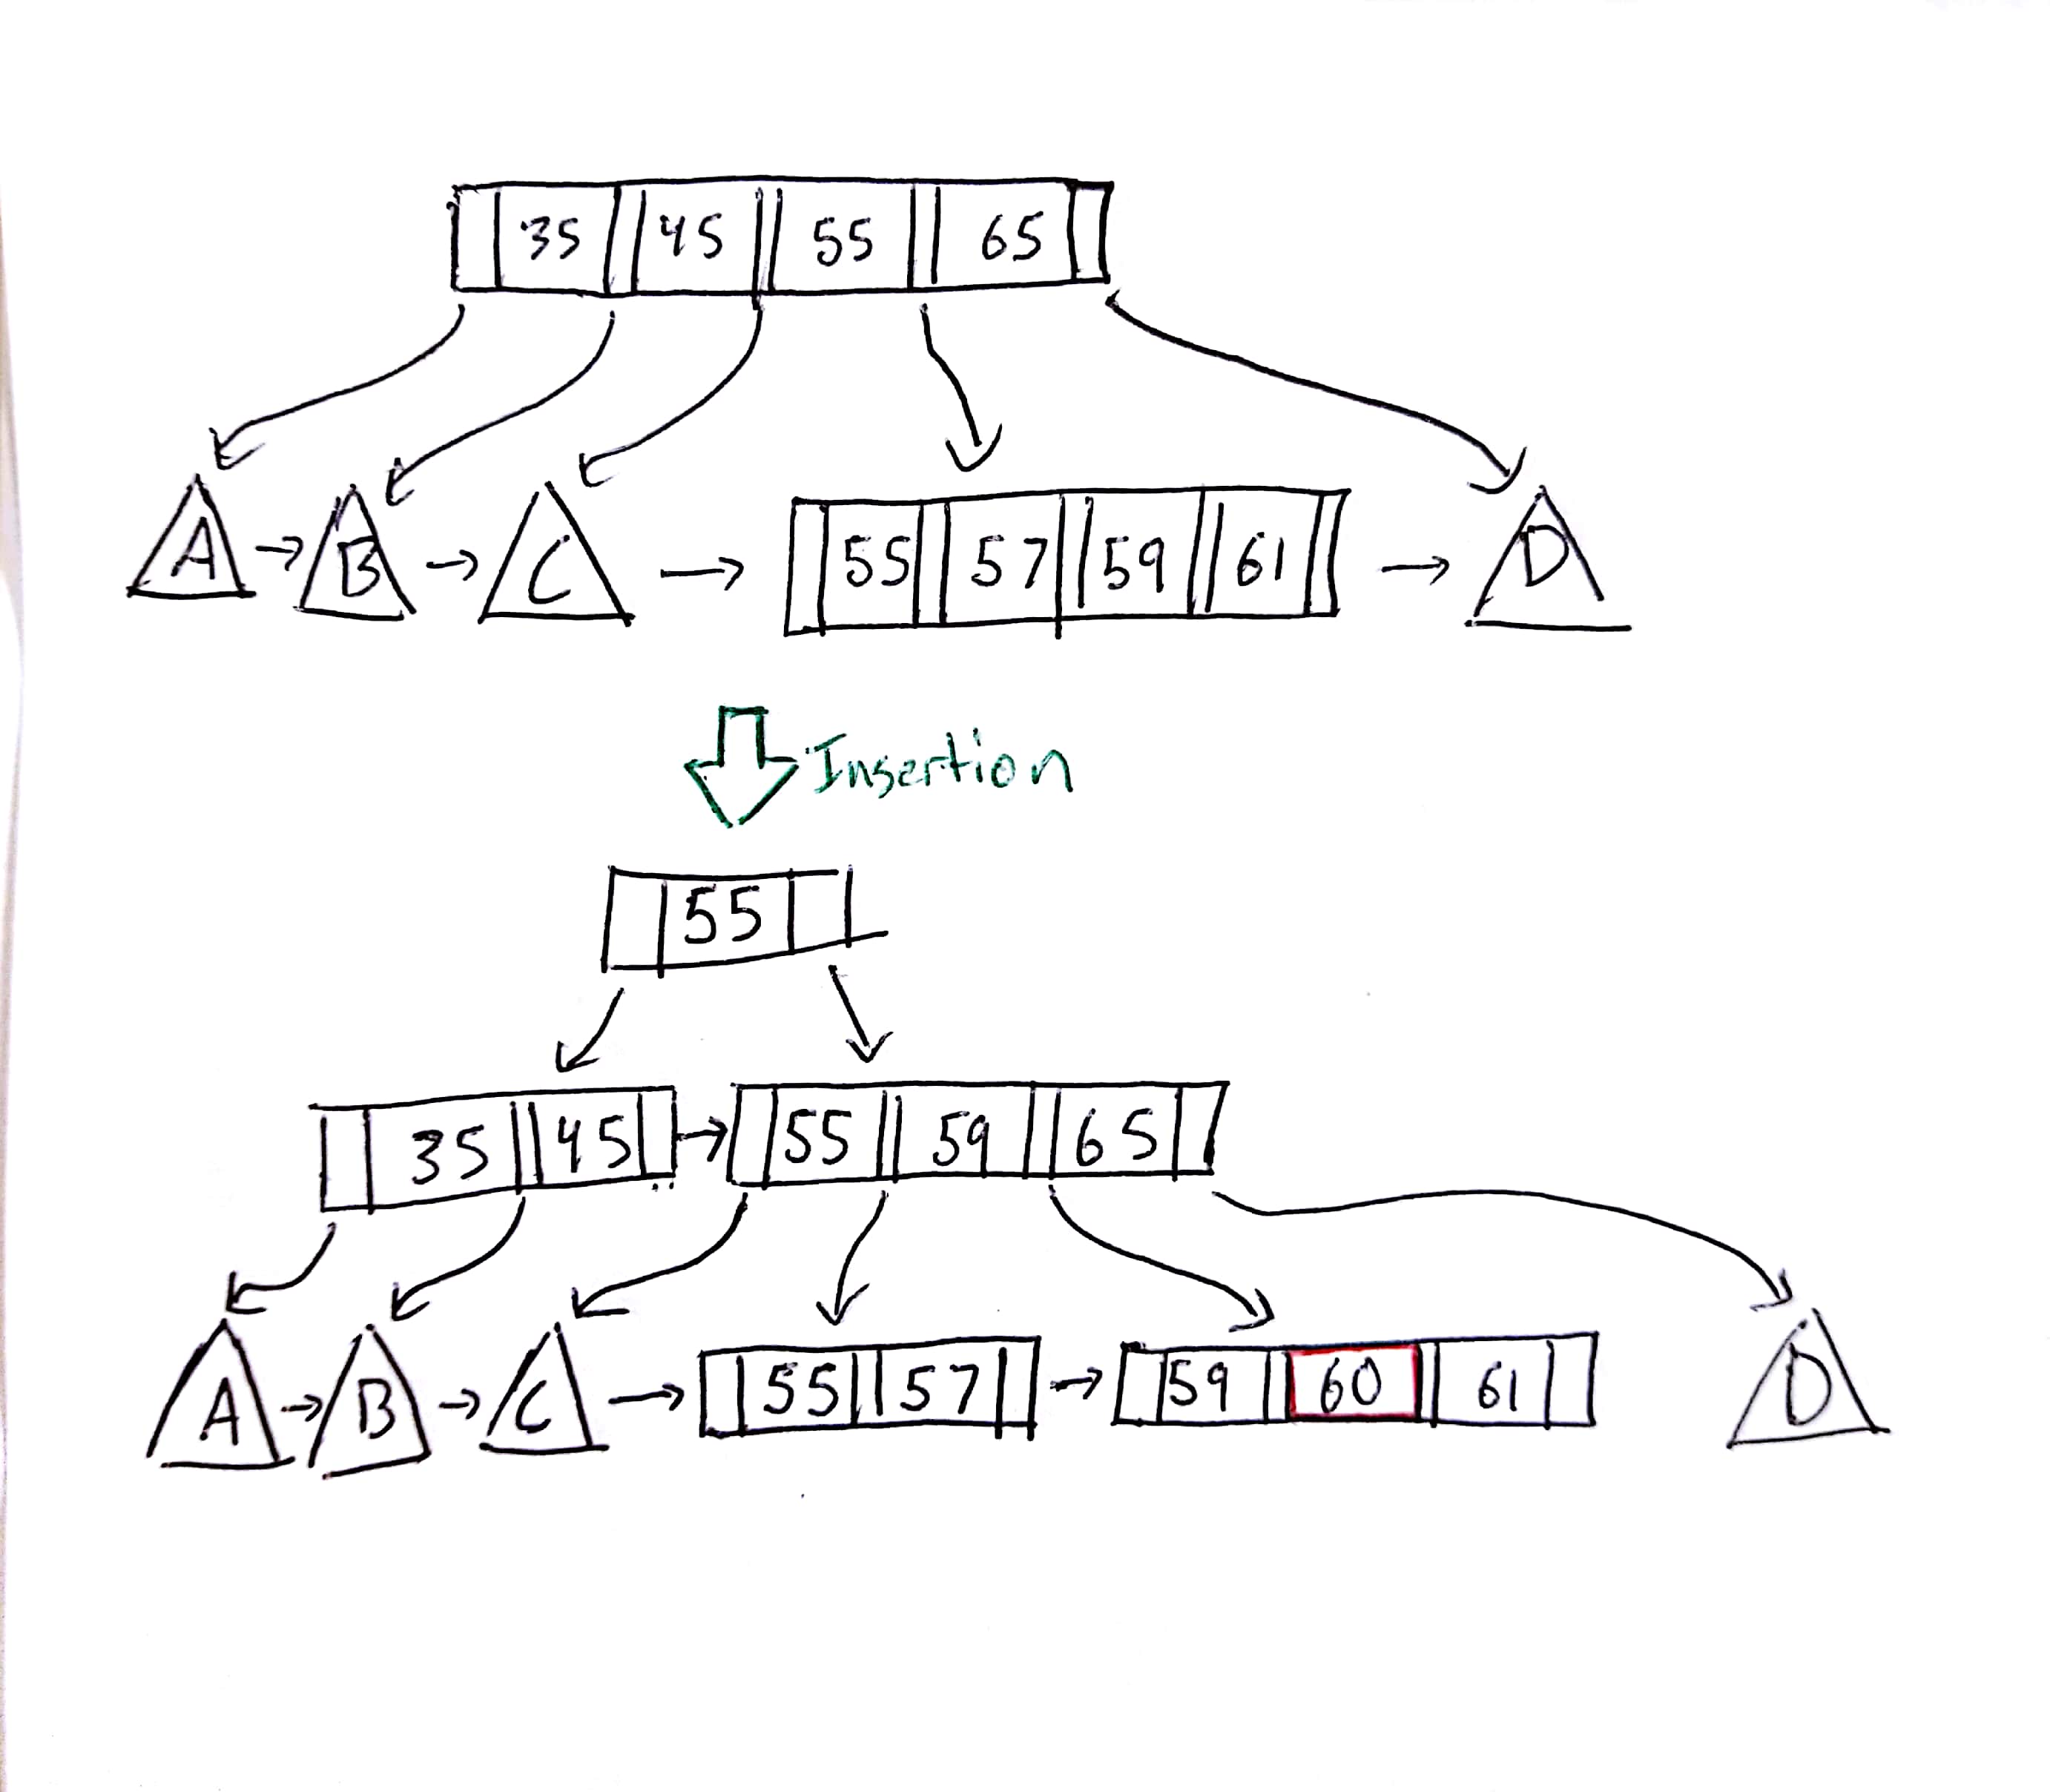 35 45 55 65
A B C 55 57 59 61 D
Insertion
55
35 45 55 59 65
A B C 55 57 59 60 61 D